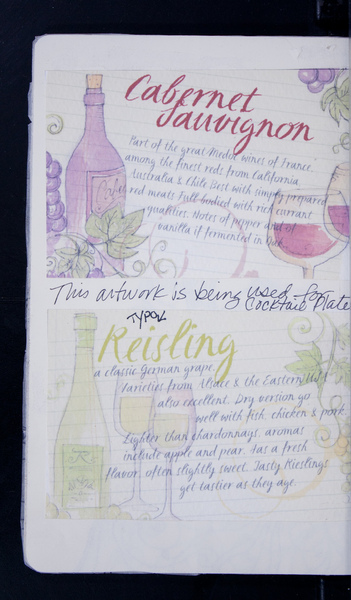 Cabernet
Sauvignon
Part of the great Medoc wines of France,
among the finest reds from California,
Australia & Chile. Best with simply prepared
red meats. Full-bodied with rich currant
qualities. Notes of pepper and of
vanilla if fermented in Oak.
This artwork is being used for
Cocktail Plate
TYPO
Reisling
a classic German grape.
Varieties from Alsace & the Eastern U.S.
also excellent. Dry version go
well with fish, chicken & pork.
Lighter than chardonnays, aromas
include apple and pear. Has a fresh
flavor, often slightly sweet. Tasty Rieslings
get tastier as they age.
R